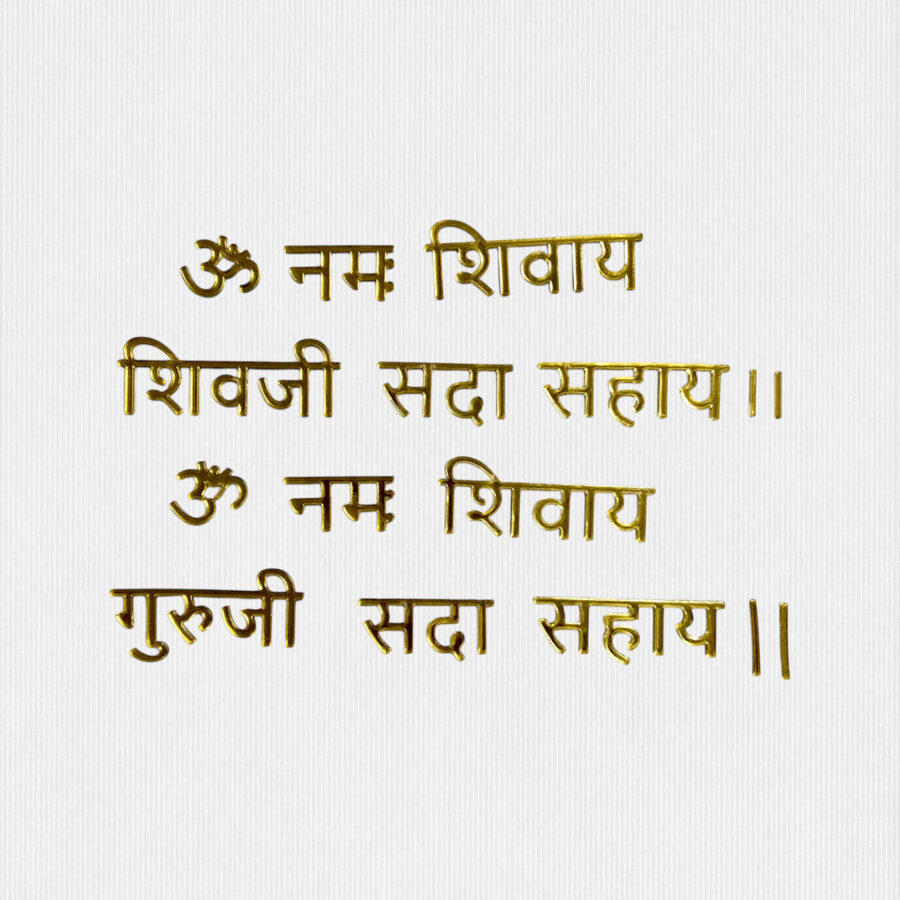 ॐ नमः शिवाय
शिवजी सदा सहाय ।।
ॐ नमः शिवाय
गुरुजी सदा सहाय ||